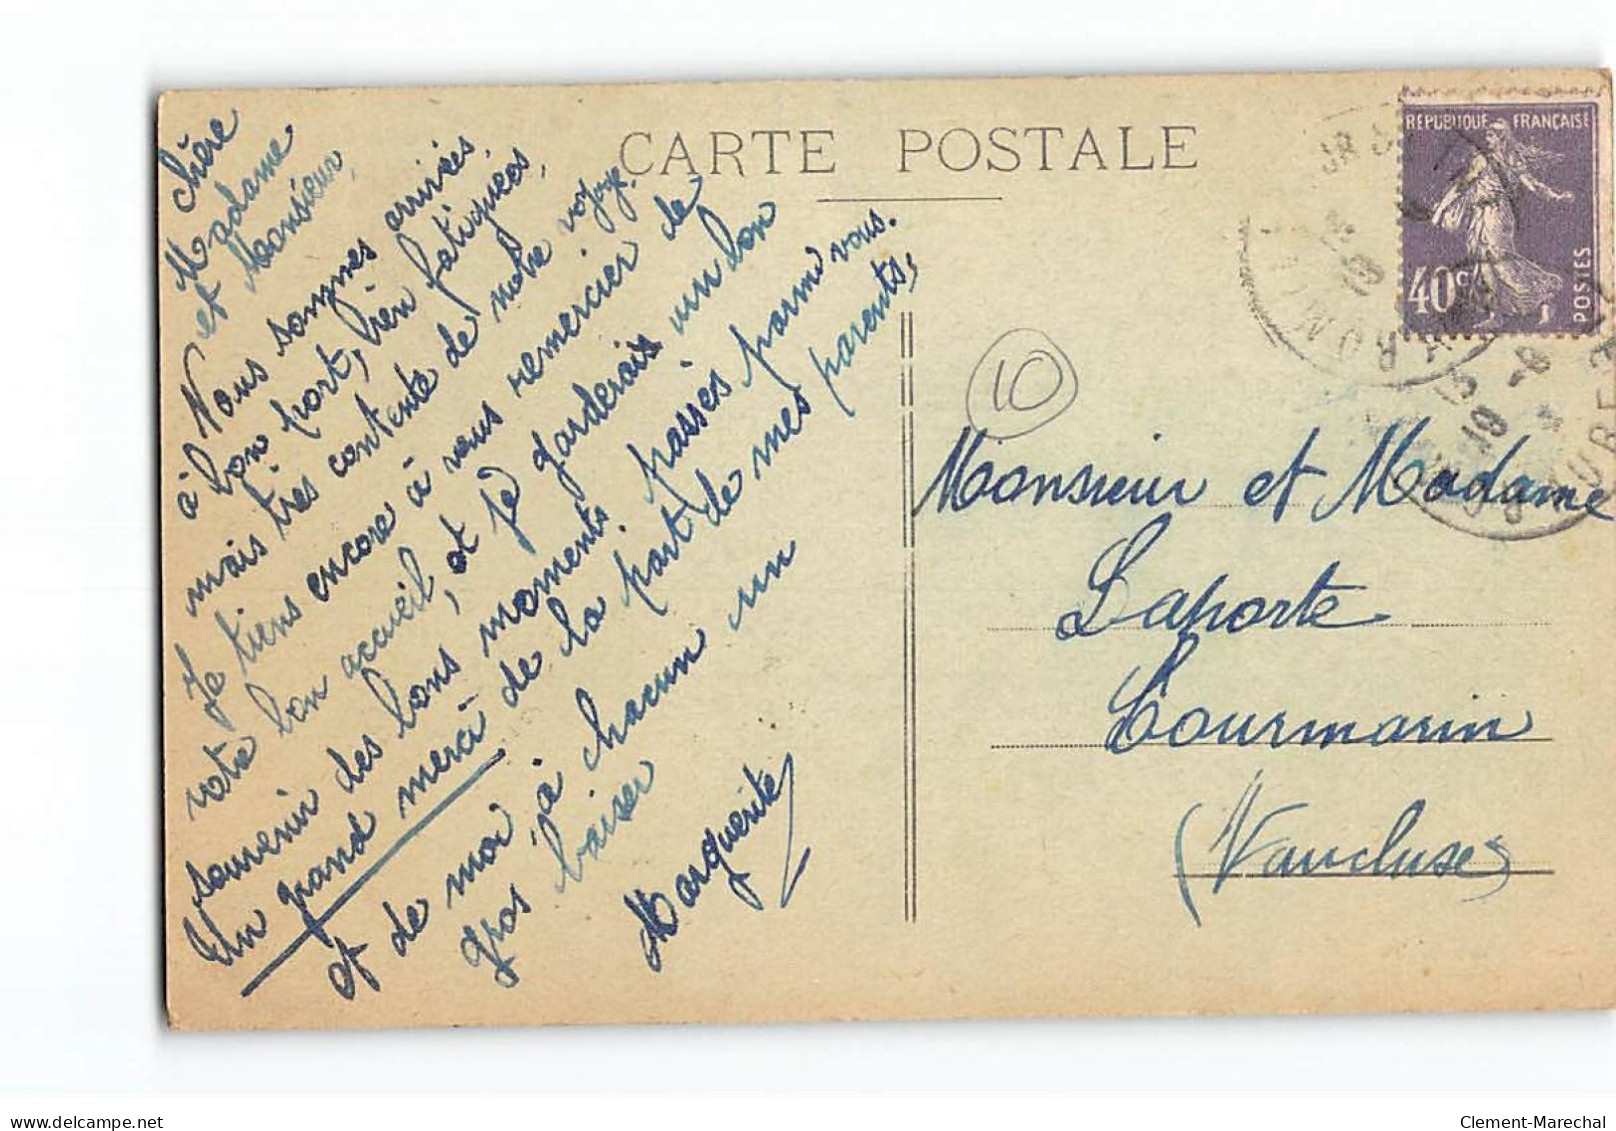 CARTE POSTALE
REPUBLIQUE FRANÇAISE
40c
POSTES
10
chère
Madame
et Monsieur,
Nous sommes arrivées
à bon port, bien fatiguées,
mais très contente de notre voyage.
Je tiens encore à vous remercier de
votre bon accueil, et je garderais un bon
souvenir des bons moments passés parmi vous.
Un grand merci de la part de mes parents,
et de moi à chacun un
gros baiser
Marguerite
Monsieur et Madame
Laporte
Lourmarin
(Vaucluse)
delcampe.net
Clement-Marechal